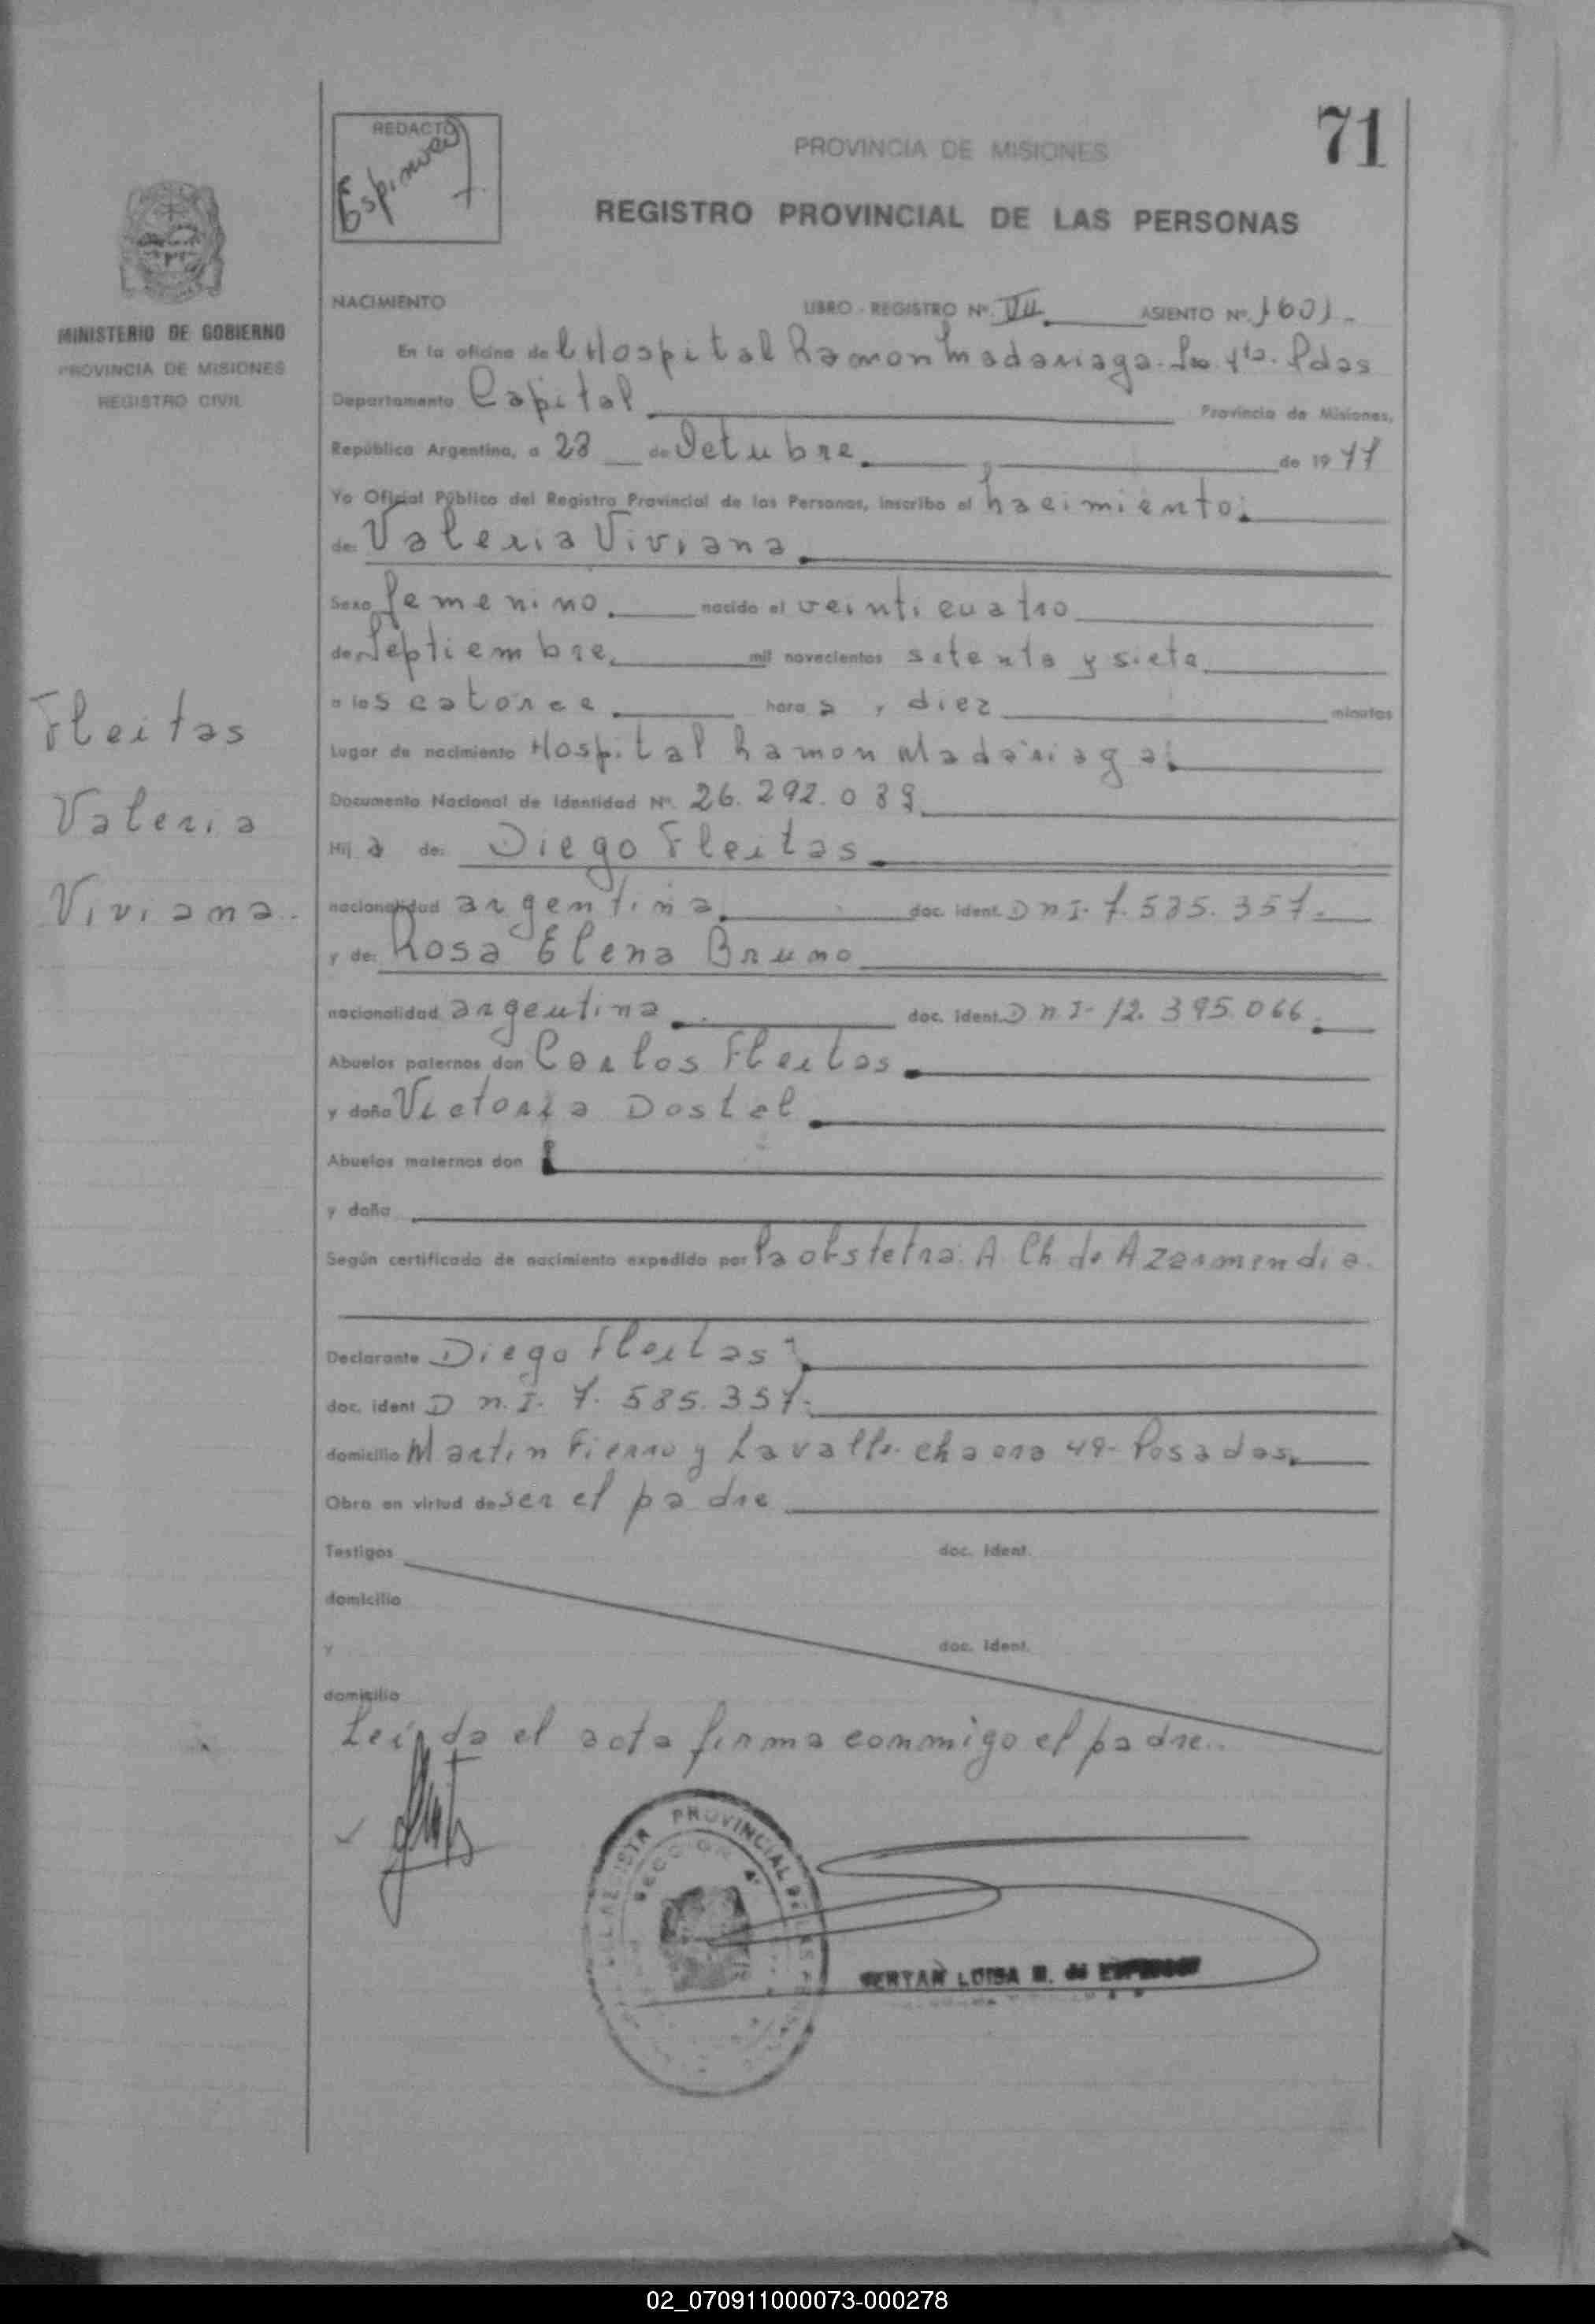 71
REDACTO
PROVINCIA DE MISIONES
REGISTRO PROVINCIAL DE LAS PERSONAS
MINISTERIO DE GOBIERNO
PROVINCIA DE MISIONES
REGISTRO CIVIL
NACIMIENTO LIBRO - REGISTRO Nº. VII ASIENTO Nº. 1601.-
En la oficina del Hospital Ramon Madariaga. 4ta. Pdas
Departamento Capital Provincia de Misiones,
República Argentina, a 28 de Octubre de 1977
Yo Oficial Público del Registro Provincial de las Personas, inscribo el nacimiento.
de: Valeria Viviana
Sexo femenino. nacido el veinticuatro
de Septiembre. mil novecientos setenta y siete
a las catorce hora s y diez minutos
Lugar de nacimiento Hospital Ramon Madariaga.
Documento Nacional de Identidad Nº. 26.292.089
Hij a de: Diego Fleitas
nacionalidad argentina doc. ident. D n I. 7.585.357.-
y de: Rosa Elena Bruno
nacionalidad argentina doc. ident. D n I- 12.395.066.
Abuelos paternos don Carlos Fleitas
y doña Victoria Dostal
Abuelos maternos don
y doña
Según certificado de nacimiento expedido por la obstetra: A Ch. de Azarmendia.
Declarante Diego Fleitas
doc. ident D n. I. 7.585.357.-
domicilio Martin Fierro y Lavalle. chacra 49- Posadas.
Obra en virtud de ser el padre
Testigos doc. ident.
domicilio
y doc. ident.
domicilio
Leída el acta firma conmigo el padre..
Fleitas
Valeria
Viviana.
PROVINCIAL DE LAS
SECCION 4ª
LUISA
02_070911000073-000278